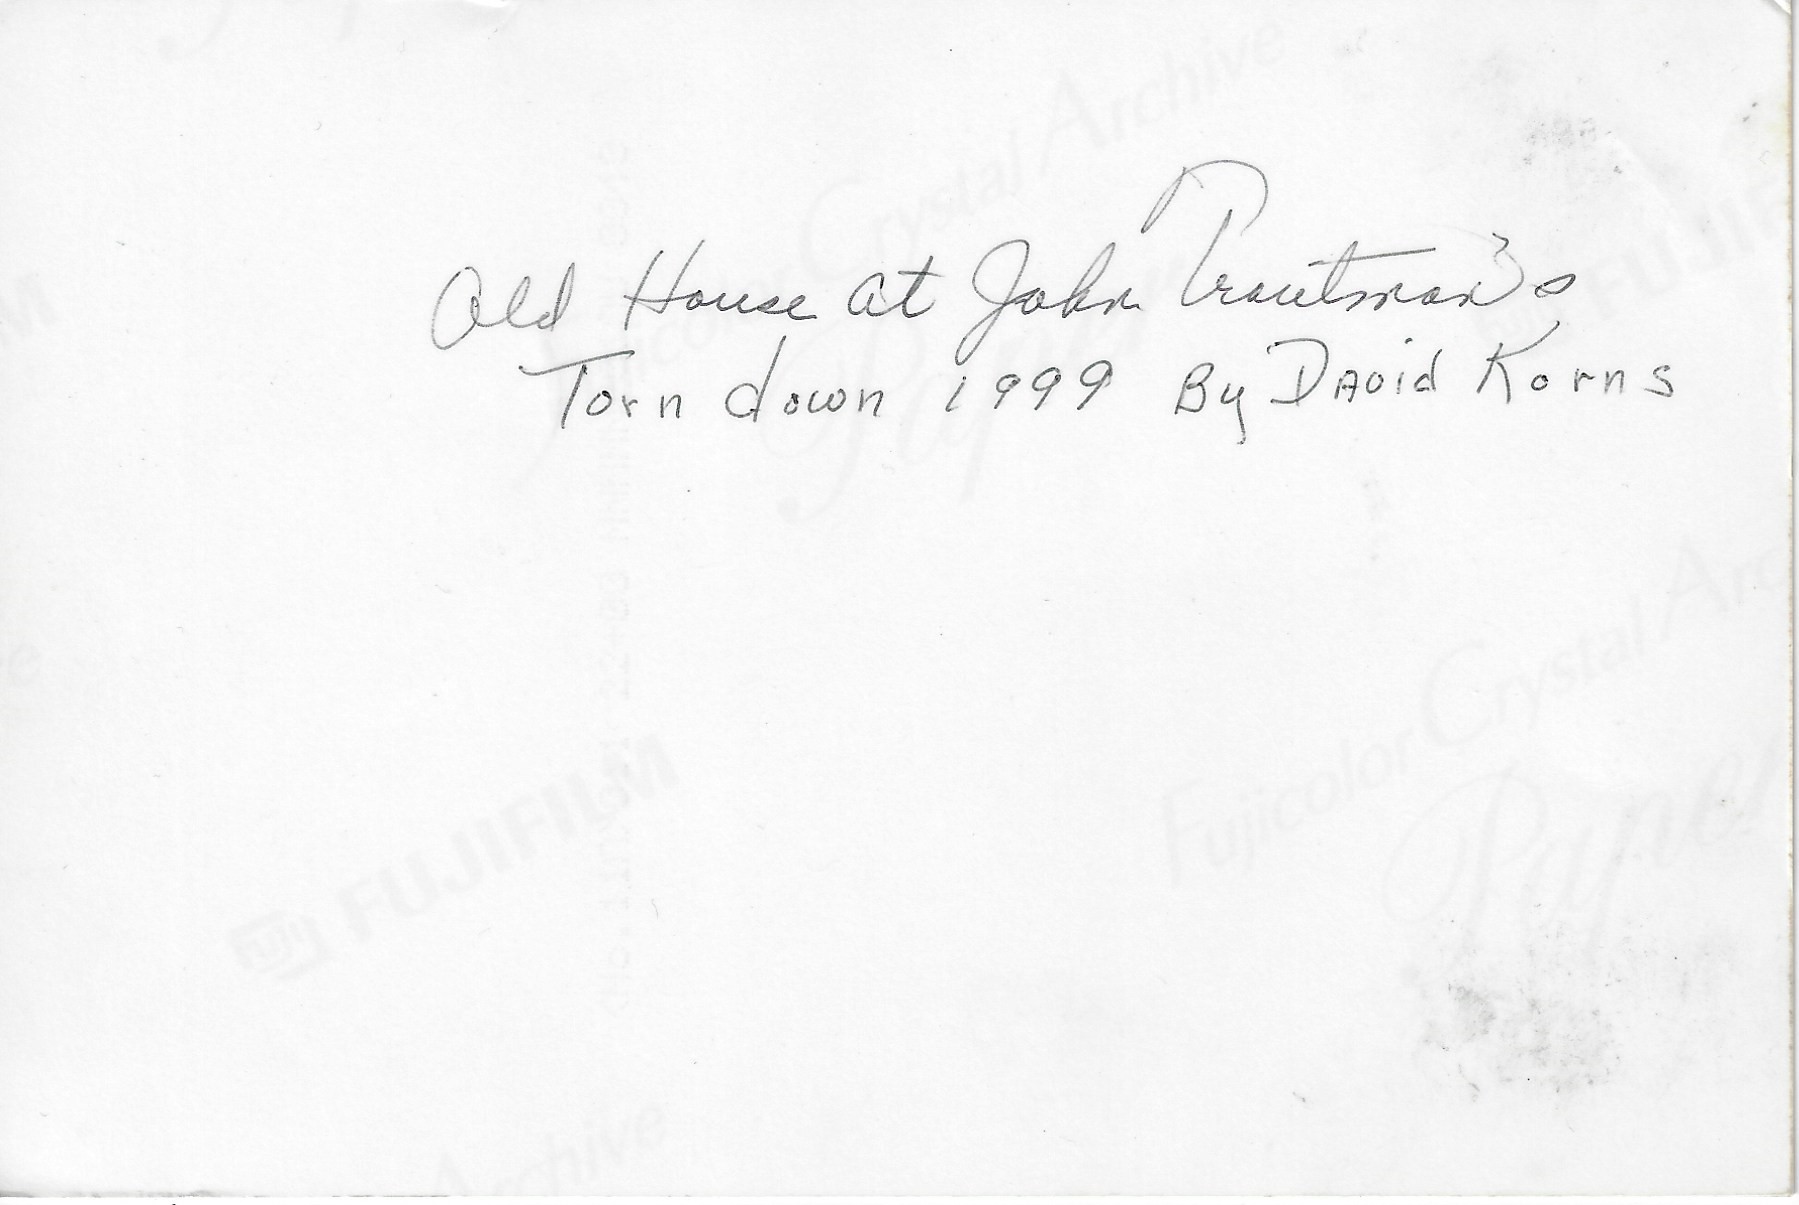 Old House at John Troutman's
Torn down 1999 By David Korns
Fujicolor Crystal Archive
Paper
FUJIFILM
Fujicolor Crystal Arc
Paper
FUJI FUJIFILM
Archive